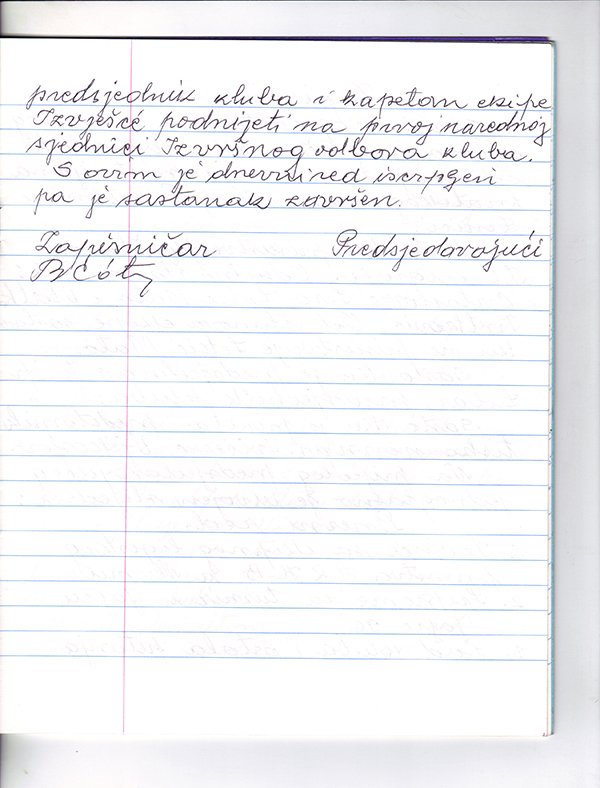 predsjednik kluba i kapetan ekipe
Izvješće podnijeti na prvoj narednoj
sjednici Izvršnog odbora kluba.
S ovim je dnevni red iscrpljen
pa je sastanak završen.
Zapisničar Predsjedavajući